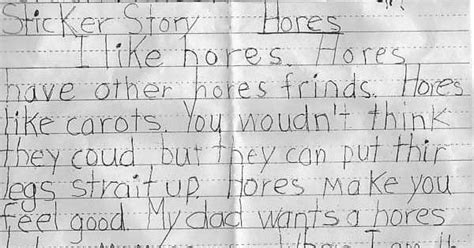 Sticker Story Hores
I like hores. Hores
have other hores frinds. Hores
like carots. You woudn't think
they coud but they can put thir
legs strait up. Hores make you
feel good. My dad wants a hores